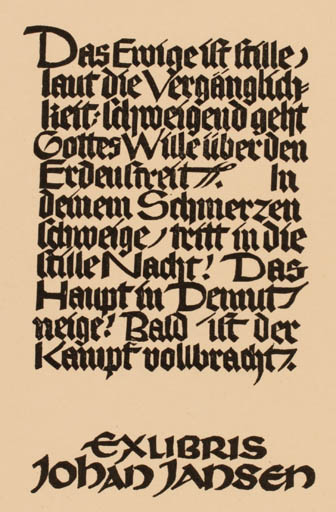 Das Ewige ist stille,
laut die Vergänglich-
keit; schweigend geht
Gottes Wille über den
Erdenstreit. In
deinem Schmerzen
schweige, tritt in die
stille Nacht! Das
Haupt in Demut
neige! Bald ist der
Kampf vollbracht.
EXLIBRIS
Johan Jansen